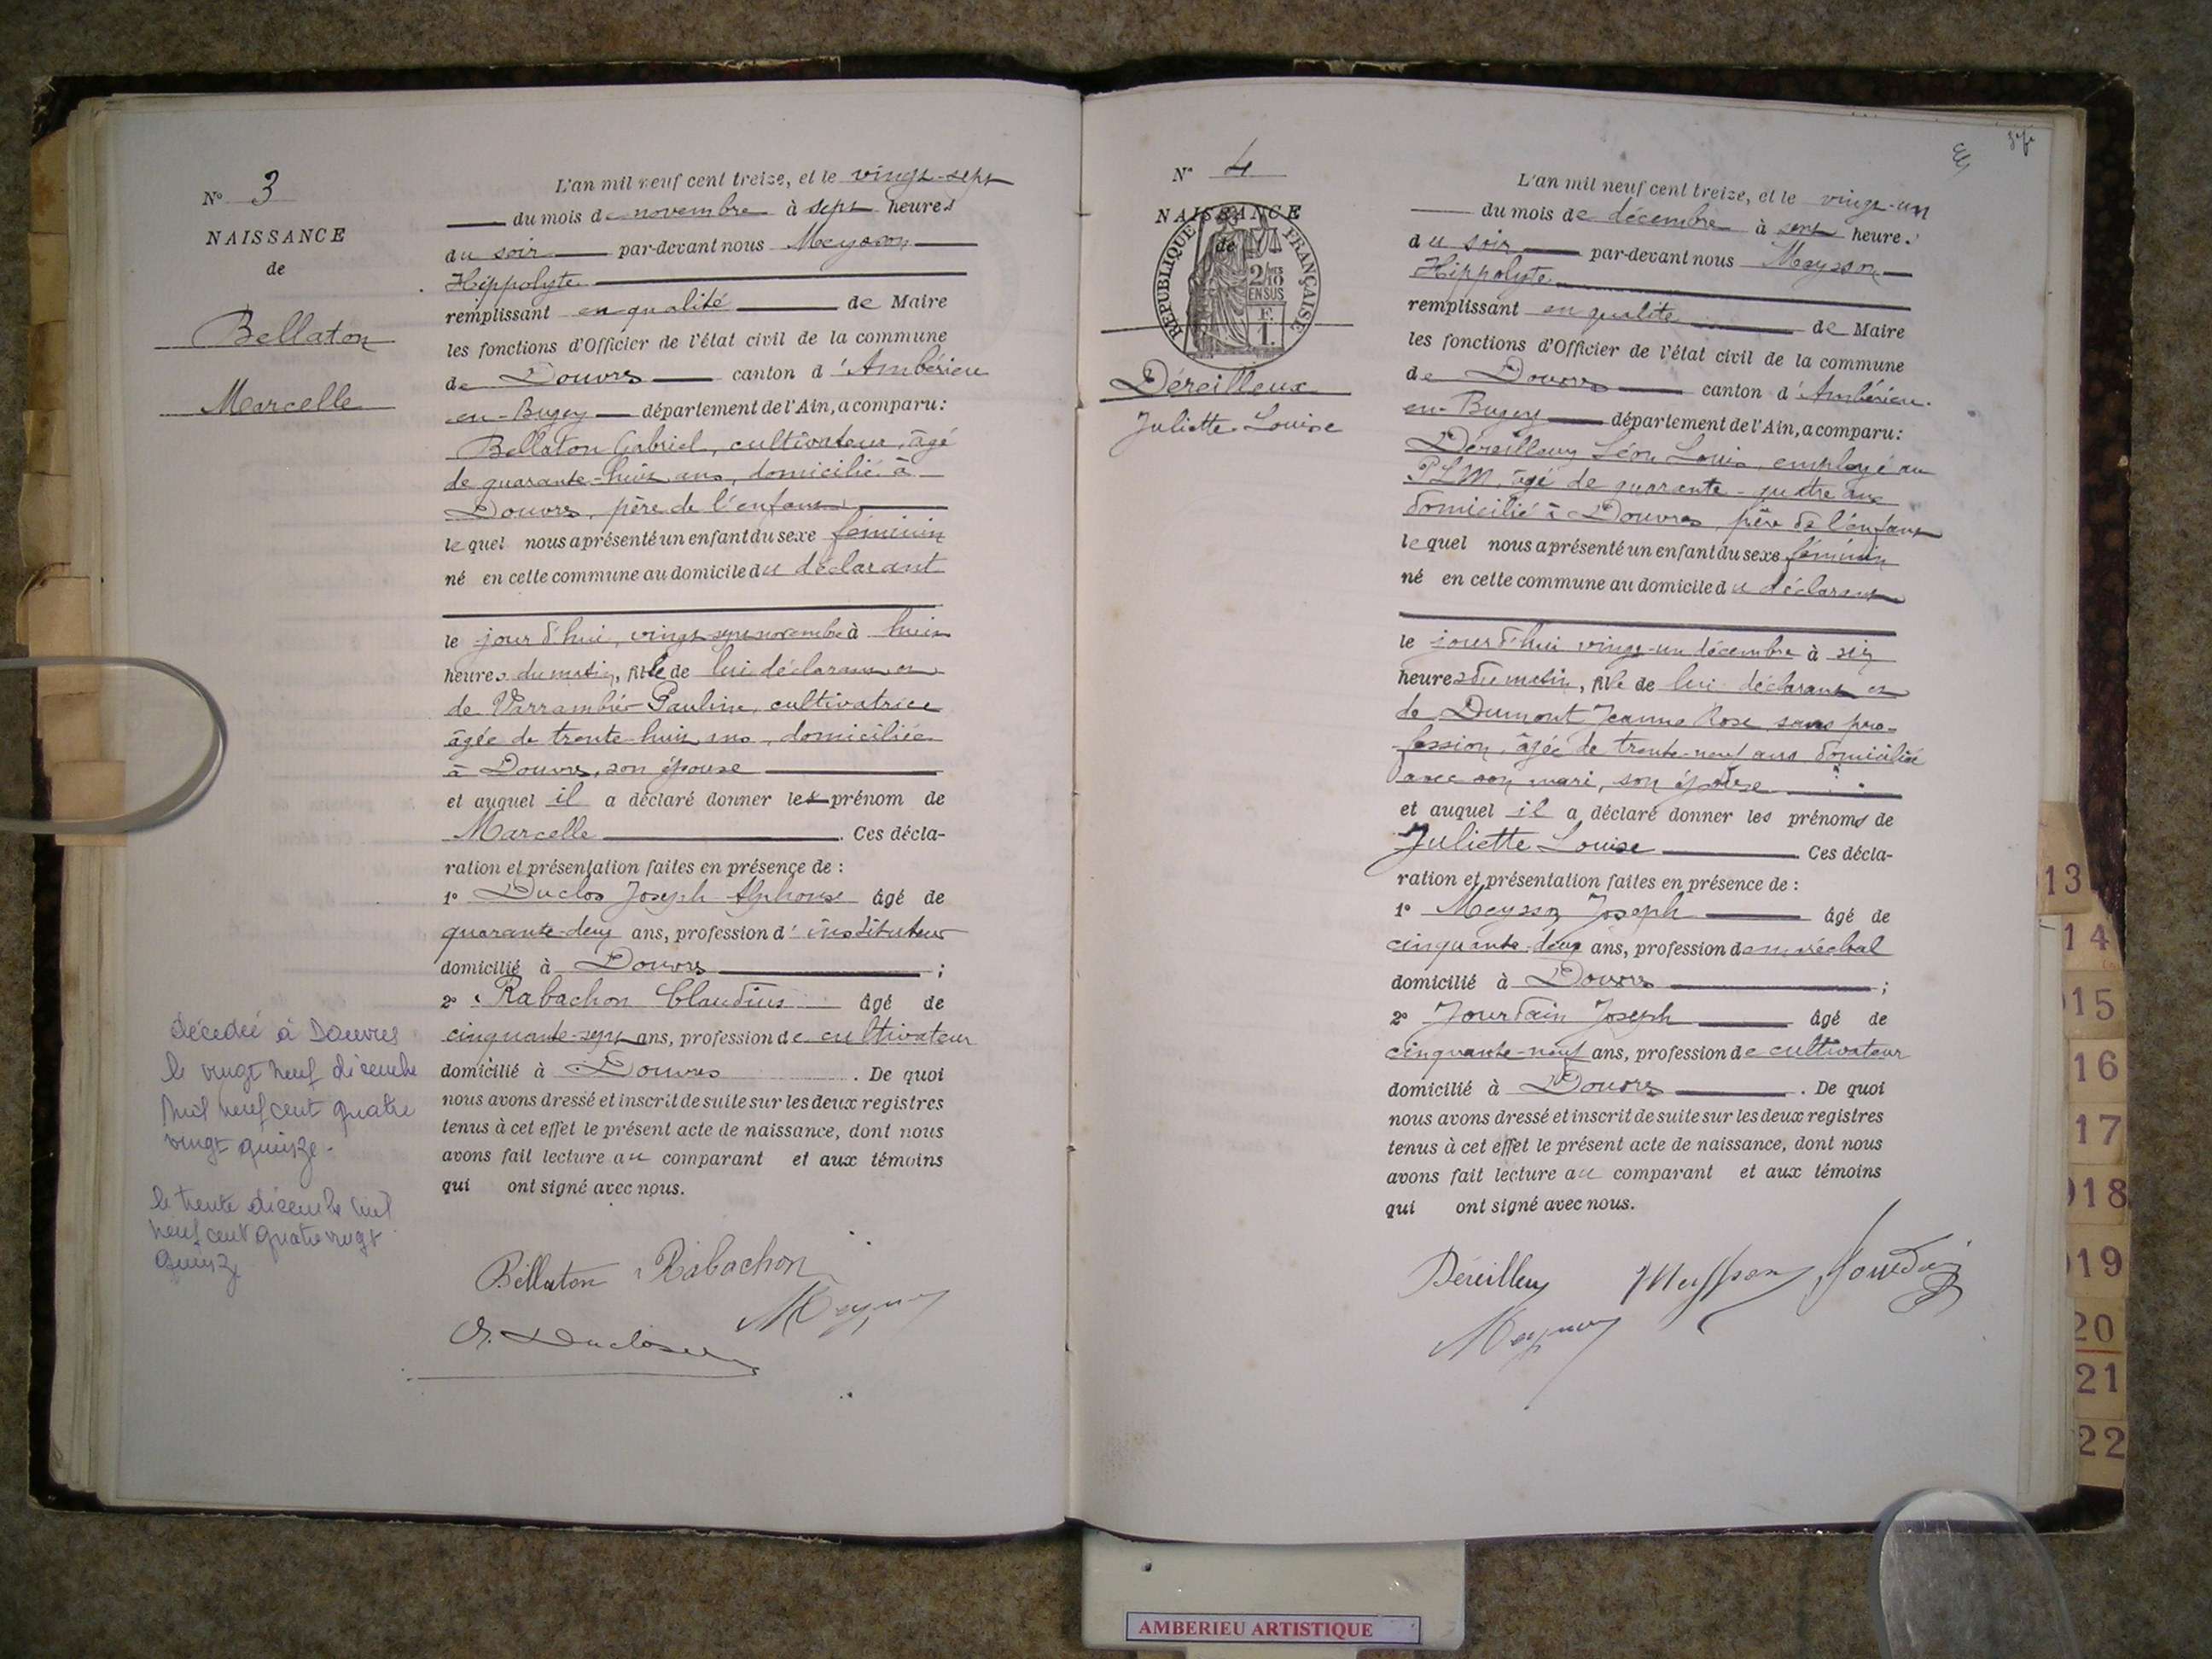 N° 3
NAISSANCE
de
Bellaton
Marcelle
décédée à Douvres
le vingt neuf décembre
mil neuf cent quatre
vingt quinze.
le trente décembre mil
neuf cent quatre vingt
quinze
L'an mil neuf cent treize, et le vingt-sept
du mois de novembre à sept heures
du soir par-devant nous Meysson
Hippolyte
remplissant en qualité de Maire
les fonctions d'Officier de l'état civil de la commune
de Douvres canton d'Ambérieu
en-Bugey département de l'Ain, a comparu:
Bellaton Gabriel, cultivateur, âgé
de quarante-huit ans, domicilié à
Douvres, père de l'enfant
lequel nous a présenté un enfant du sexe féminin
né en cette commune au domicile du déclarant
le jour d'hui, vingt-sept novembre à huit
heures du matin, fille de lui déclarant et
de Varrambier Pauline, cultivatrice
âgée de trente-huit ans, domiciliée
à Douvres, son épouse
et auquel il a déclaré donner le prénom de
Marcelle. Ces décla-
ration et présentation faites en présence de :
1° Duclos Joseph Alphonse âgé de
quarante-deux ans, profession d'instituteur
domicilié à Douvres ;
2° Rabachon Claudius âgé de
cinquante-sept ans, profession de cultivateur
domicilié à Douvres. De quoi
nous avons dressé et inscrit de suite sur les deux registres
tenus à cet effet le présent acte de naissance, dont nous
avons fait lecture au comparant et aux témoins
qui ont signé avec nous.
Bellaton Rabachon
Meysson
Duclos
N° 4
NAISSANCE
de
RÉPUBLIQUE FRANÇAISE
2/10
EN SUS
E.
1.
Déreilleux
Juliette Louise
L'an mil neuf cent treize, et le vingt-un
du mois de décembre à sept heures
du soir par-devant nous Meysson
Hippolyte
remplissant en qualité de Maire
les fonctions d'Officier de l'état civil de la commune
de Douvres canton d'Ambérieu-
en-Bugey département de l'Ain, a comparu:
Déreilleux Léon Louis, employé au
PLM, âgé de quarante-quatre ans
domicilié à Douvres, père de l'enfant
lequel nous a présenté un enfant du sexe féminin
né en cette commune au domicile du déclarant
le jour d'hui vingt-un décembre à six
heures du matin, fille de lui déclarant et
de Dumont Jeanne Rose, sans pro-
fession, âgée de trente-neuf ans domiciliée
avec son mari, son épouse
et auquel il a déclaré donner les prénoms de
Juliette Louise. Ces décla-
ration et présentation faites en présence de :
1° Meysson Joseph âgé de
cinquante-deux ans, profession de maréchal
domicilié à Douvres ;
2° Jourdain Joseph âgé de
cinquante-neuf ans, profession de cultivateur
domicilié à Douvres. De quoi
nous avons dressé et inscrit de suite sur les deux registres
tenus à cet effet le présent acte de naissance, dont nous
avons fait lecture au comparant et aux témoins
qui ont signé avec nous.
Déreilleux Meysson Jourdain
Meysson
13
14
15
16
17
18
19
20
21
22
AMBERIEU ARTISTIQUE